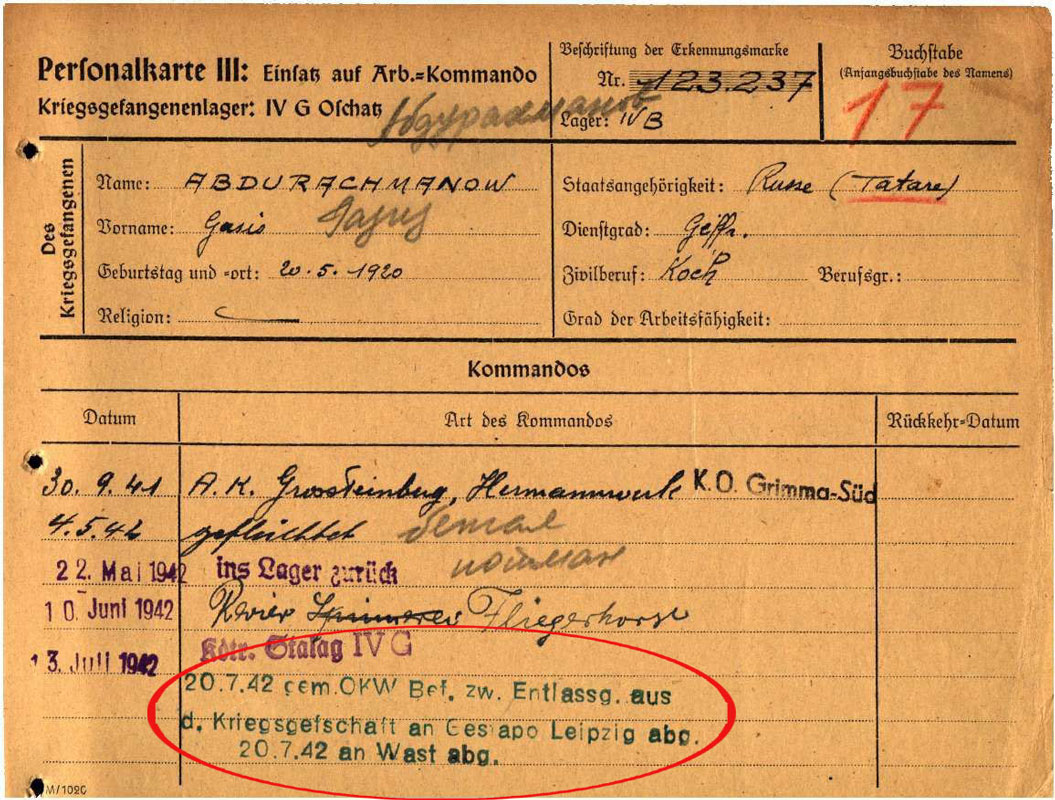 Personalkarte III: Einsatz auf Arb.=Kommando
Kriegsgefangenenlager: IV G Oschatz
Абдурахманов
Beschriftung der Erkennungsmarke
Nr. 123237
Lager: IV B
Buchstabe
(Anfangsbuchstabe des Namens)
17
Des Kriegsgefangenen
Name: ABDURACHMANOW
Vorname: Gasis Газиз
Geburtstag und =ort: 20.5.1920
Religion:
Staatsangehörigkeit: Russe (Tatare)
Dienstgrad: Gefr.
Zivilberuf: Koch Berufsgr.:
Grad der Arbeitsfähigkeit:
Kommandos
Datum Art des Kommandos Rückkehr=Datum
30.9.41 A.K. Grosssteinberg, Hermannwerk K.O. Grimma-Süd
4.5.42 geflüchtet бежал
22. Mai 1942 ins Lager zurück пойман
10. Juni 1942 Revier Fliegerhorst
13. Juli 1942 Kdtr. Stalag IV G
20.7.42 gem. OKW Bef. zw. Entlassg. aus
d. Kriegsgefschaft an Gestapo Leipzig abg.
20.7.42 an Wast abg.
M/1020